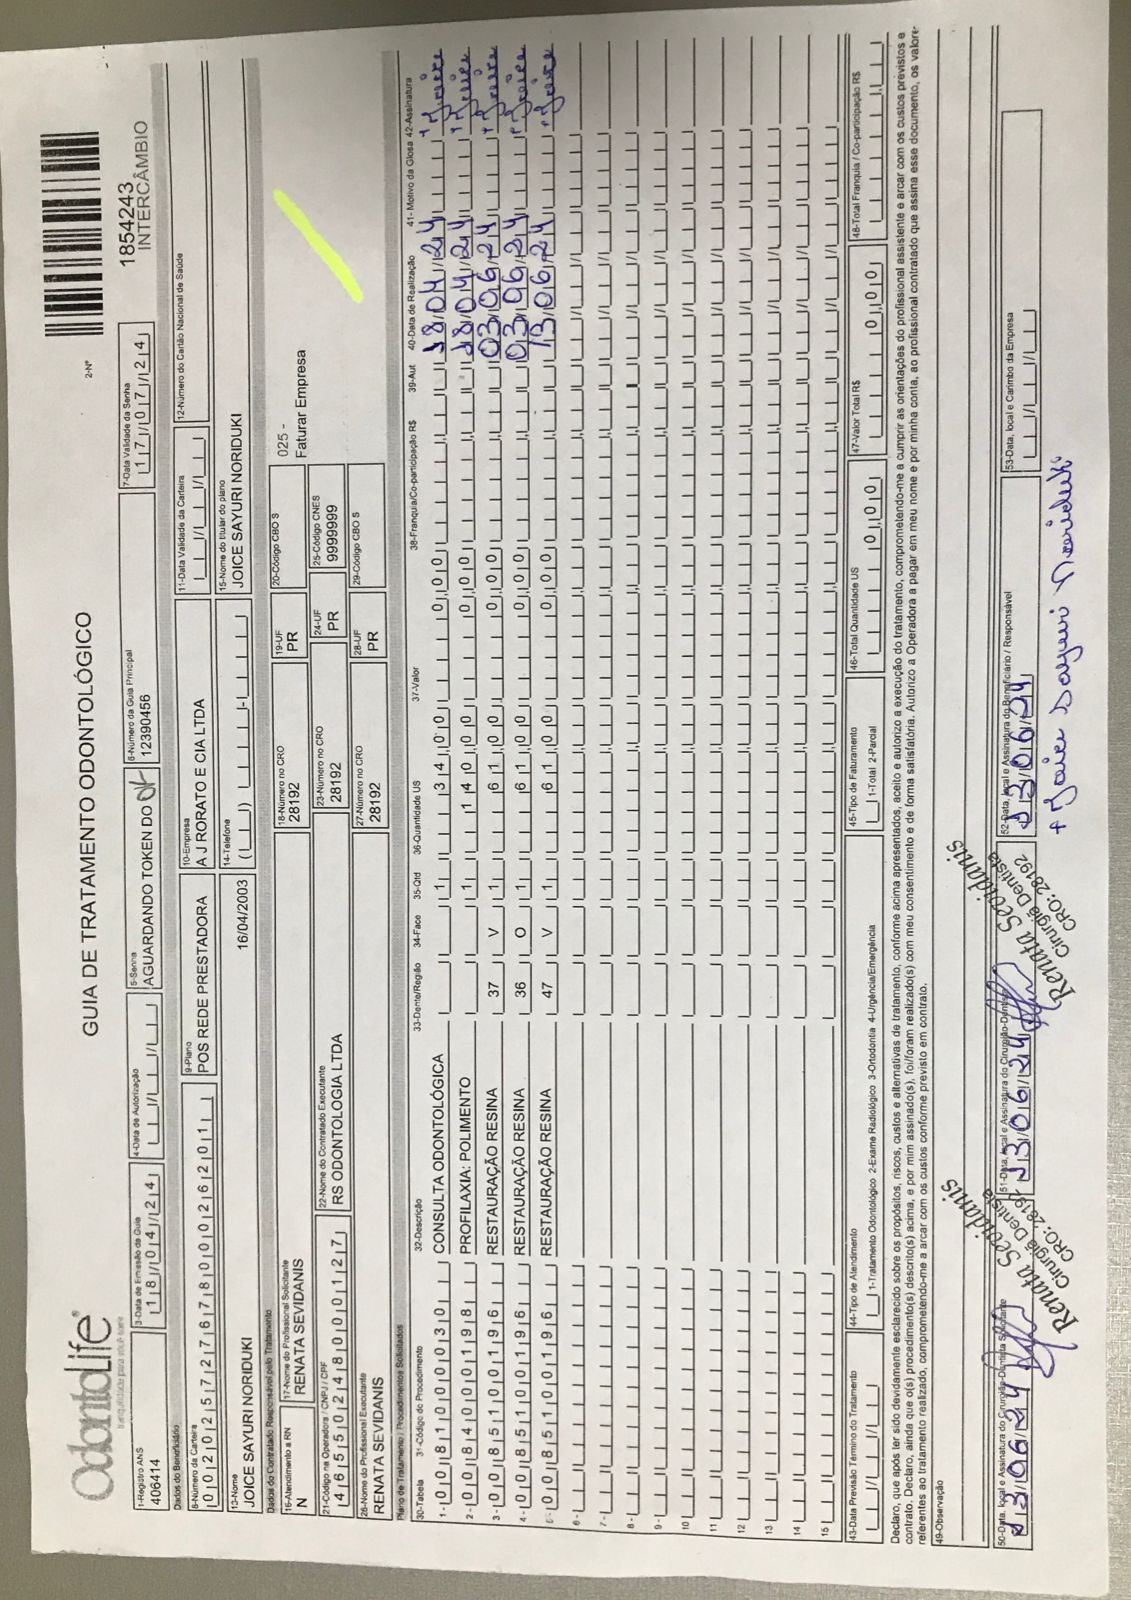 OdontoLife®
tranquilidade para você sorrir
GUIA DE TRATAMENTO ODONTOLÓGICO
2-Nº
1854243
INTERCÂMBIO
1-Registro ANS
406414
3-Data de Emissão da Guia
18/04/24
4-Data de Autorização
5-Senha
AGUARDANDO TOKEN DO
6-Número da Guia Principal
12390456
7-Data Validade da Senha
17/07/24
Dados do Beneficiário
8-Número da Carteira
00202572767800026201
9-Plano
POS REDE PRESTADORA
10-Empresa
A J RORATO E CIA LTDA
11-Data Validade da Carteira
12-Número do Cartão Nacional de Saúde
13-Nome
JOICE SAYURI NORIDUKI
16/04/2003
14-Telefone
15-Nome do titular do plano
JOICE SAYURI NORIDUKI
Dados do Contratado Responsável pelo Tratamento
16-Atendimento a RN
N
17-Nome do Profissional Solicitante
RENATA SEVIDANIS
18-Número no CRO
28192
19-UF
PR
20-Código CBO S
025 -
Faturar Empresa
21-Código na Operadora / CNPJ / CPF
46550248000127
22-Nome do Contratado Executante
RS ODONTOLOGIA LTDA
23-Número no CRO
28192
24-UF
PR
25-Código CNES
9999999
26-Nome do Profissional Executante
RENATA SEVIDANIS
27-Número no CRO
28192
28-UF
PR
29-Código CBO S
Plano de Tratamento / Procedimentos Solicitados
30-Tabela 31-Código do Procedimento 32-Descrição 33-Dente/Região 34-Face 35-Qtd 36-Quantidade US 37-Valor 38-Franquia/Co-participação R$ 39-Aut 40-Data de Realização 41-Motivo da Glosa 42-Assinatura
1 - 00 81000030 CONSULTA ODONTOLÓGICA 1 34,00 0,00 18/04/24 Joice
2 - 00 84000198 PROFILAXIA: POLIMENTO 1 140,00 0,00 18/04/24 Joice
3 - 00 85100196 RESTAURAÇÃO RESINA 37 V 1 61,00 0,00 03/06/24 Joice
4 - 00 85100196 RESTAURAÇÃO RESINA 36 O 1 61,00 0,00 03/06/24 Joice
5 - 00 85100196 RESTAURAÇÃO RESINA 47 V 1 61,00 0,00 13/06/24 Joice
6 -
7 -
8 -
9 -
10
11
12
13
14
15
43-Data Previsão Término do Tratamento
44-Tipo de Atendimento
1-Tratamento Odontológico 2-Exame Radiológico 3-Ortodontia 4-Urgência/Emergência
45-Tipo de Faturamento
1-Total 2-Parcial
46-Total Quantidade US
0,00
47-Valor Total R$
0,00
48-Total Franquia / Co-participação R$
Declaro, que após ter sido devidamente esclarecido sobre os propósitos, riscos, custos e alternativas de tratamento, conforme acima apresentados, aceito e autorizo a execução do tratamento, comprometendo-me a cumprir as orientações do profissional assistente e arcar com os custos previstos e
contrato. Declaro, ainda que o(s) procedimento(s) descrito(s) acima, e por mim assinado(s), foi/foram realizado(s) com meu consentimento e de forma satisfatória. Autorizo a Operadora a pagar em meu nome e por minha conta, ao profissional contratado que assina esse documento, os valore
referentes ao tratamento realizado, comprometendo-me a arcar com os custos conforme previsto em contrato.
49-Observação
50-Data, local e Assinatura do Cirurgião-Dentista Solicitante
13/06/24
Renata Sevidanis
Cirurgiã Dentista
CRO: 28192
51-Data, local e Assinatura do Cirurgião-Dentista
13/06/24
Renata Sevidanis
Cirurgiã Dentista
CRO: 28192
52-Data, local e Assinatura do Beneficiário / Responsável
13/06/24
Joice Sayuri Noriduki
53-Data, local e Carimbo da Empresa